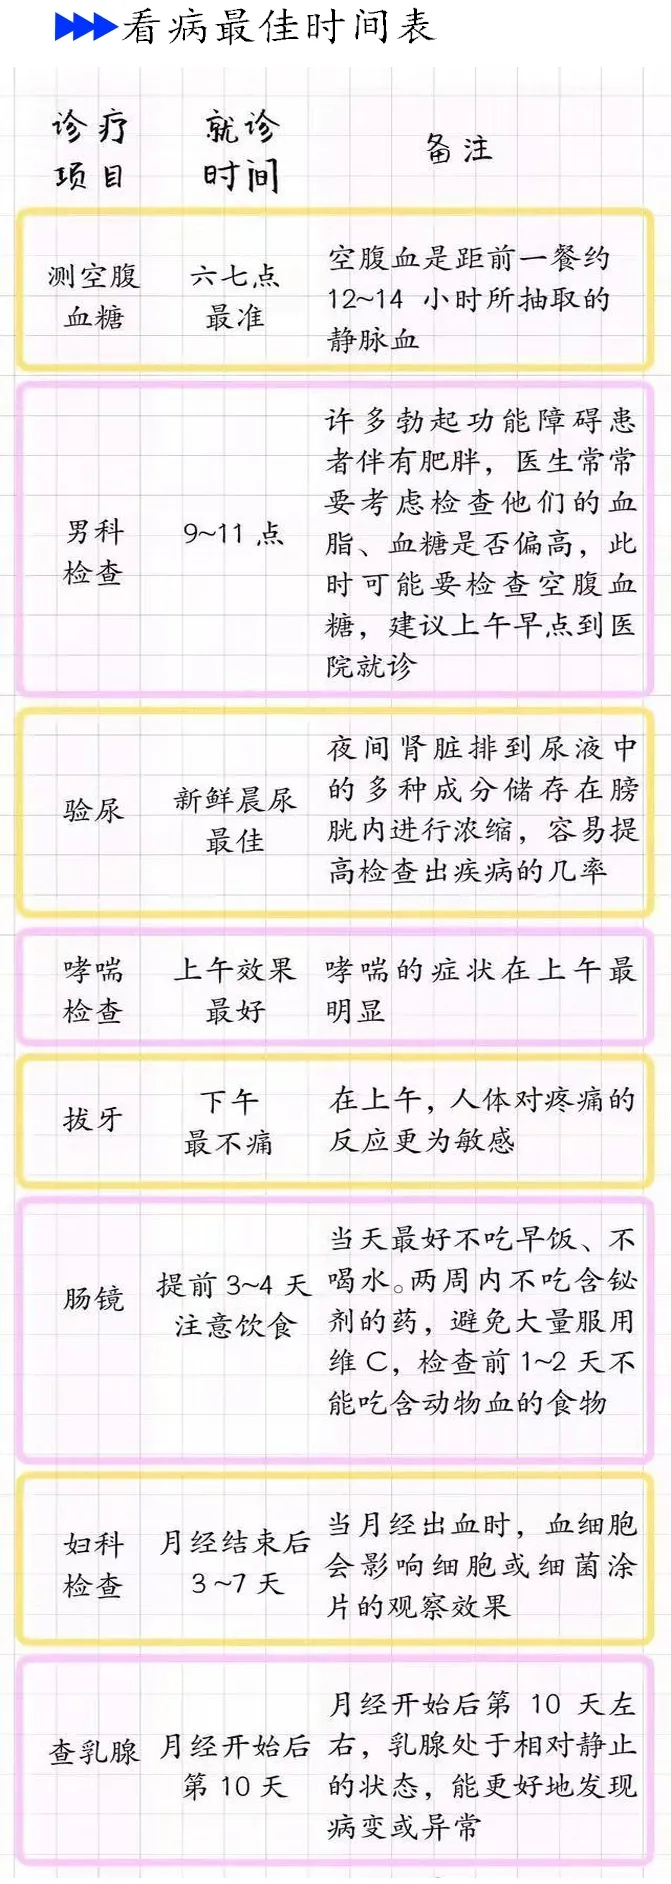 看病最佳时间表
诊疗
项目
就诊
时间
备注
测空腹
血糖
六七点
最准
空腹血是距前一餐约
12~14 小时所抽取的
静脉血
男科
检查
9~11点
许多勃起功能障碍患
者伴有肥胖，医生常常
要考虑检查他们的血
脂、血糖是否偏高，此
时可能要检查空腹血
糖，建议上午早点到医
院就诊
验尿
新鲜晨尿
最佳
夜间肾脏排到尿液中
的多种成分储存在膀
胱内进行浓缩，容易提
高检查出疾病的几率
哮喘
检查
上午效果
最好
哮喘的症状在上午最
明显
拔牙
下午
最不痛
在上午，人体对疼痛的
反应更为敏感
肠镜
提前3~4天
注意饮食
当天最好不吃早饭、不
喝水。两周内不吃含铋
剂的药，避免大量服用
维C，检查前1~2天不
能吃含动物血的食物
妇科
检查
月经结束后
3~7天
当月经出血时，血细胞
会影响细胞或细菌涂
片的观察效果
查乳腺
月经开始后
第10天
月经开始后第 10 天左
右，乳腺处于相对静止
的状态，能更好地发现
病变或异常